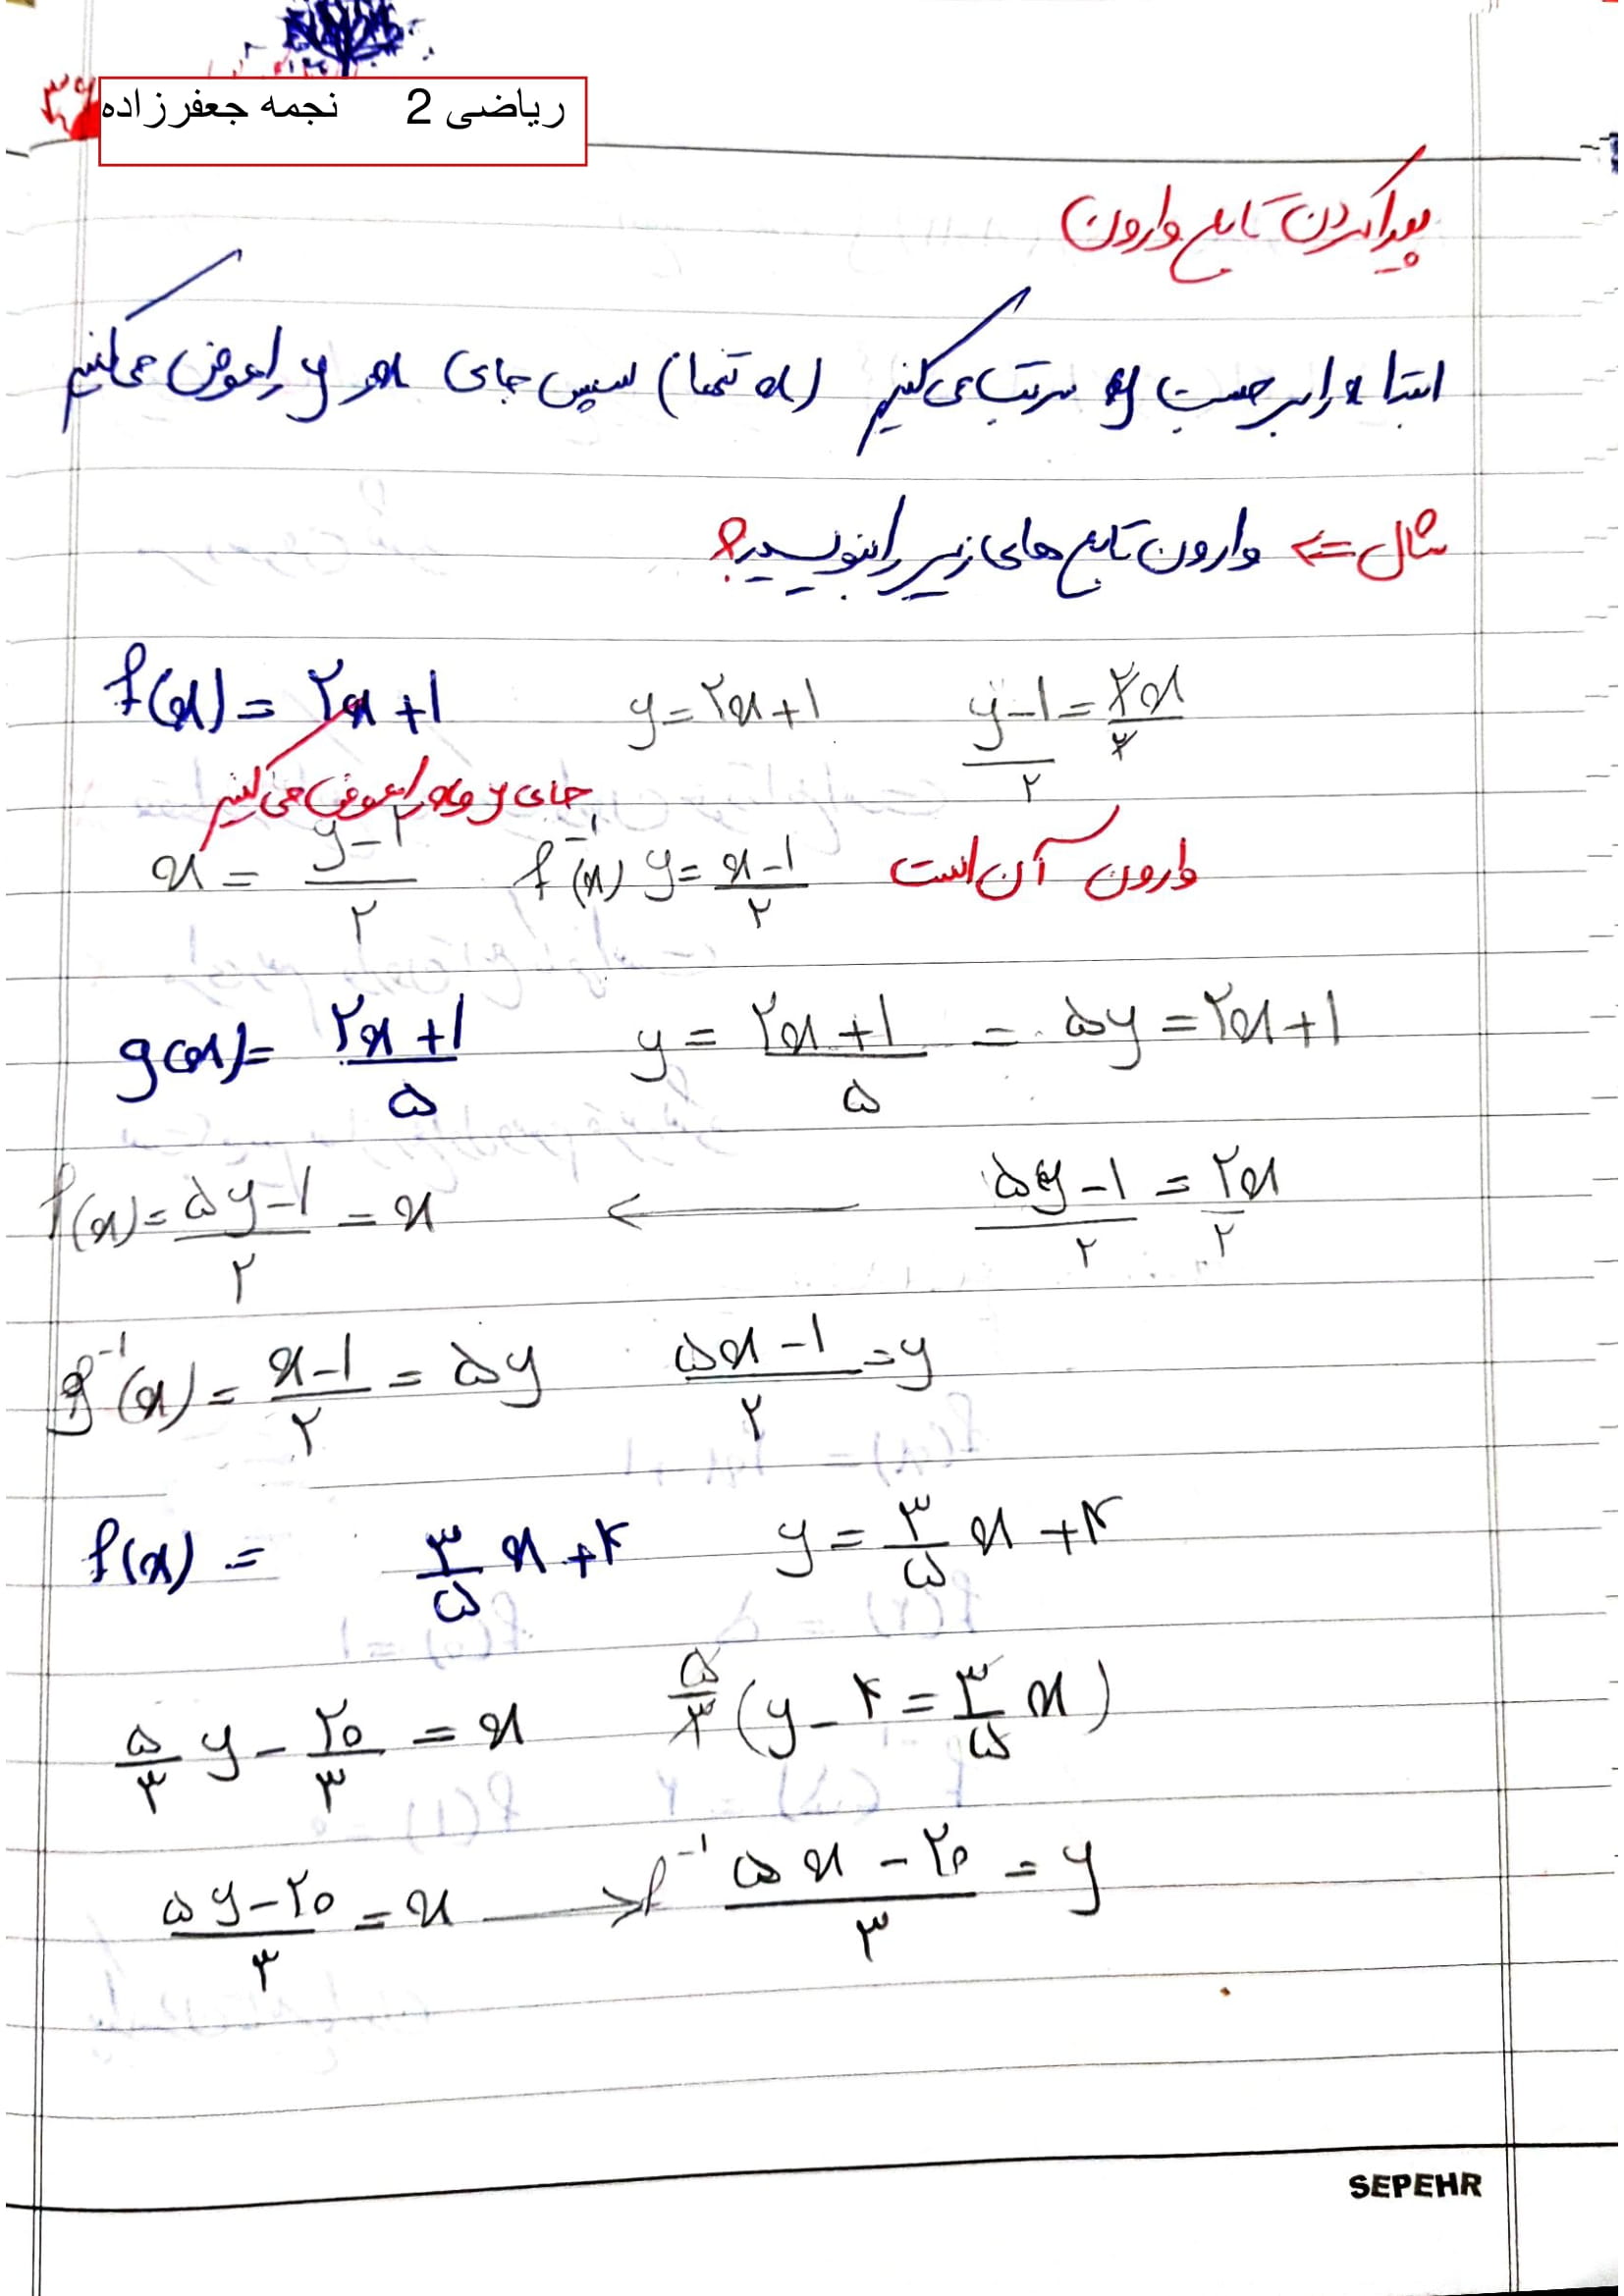 ۳۶
ریاضی 2 نجمه جعفرزاده
پیدا کردن تابع وارون
ابتدا x را بر حسب y مرتب می کنیم (x تنها) سپس جای x و y را عوض می کنیم
مثال ⇐ وارون تابع های زیر را بنویسید؟
f(x) = ۲x+۱ y=۲x+۱ y-۱/۲ = ۲x/۲
جای y و x را عوض می کنیم
x = y-۱/۲ f⁻¹(x) y= x-۱/۲ وارون آن است
g(x)= ۲x+۱/۵ y = ۲x+۱/۵ = ۵y = ۲x+۱
f(x)= ۵y-۱/۲ = x ← ۵y-۱/۲ = ۲x/۲
g⁻¹(x) = x-۱/۲ = ۵y ۵x-۱/۲ = y
f(x) = ۳/۵ x+۴ y = ۳/۵ x+۴
۵/۳ y - ۲۰/۳ = x ۵/۳ (y-۴ = ۳/۵ x)
۵y-۲۰/۳ = x → f⁻¹ ۵x-۲۰/۳ = y
SEPEHR